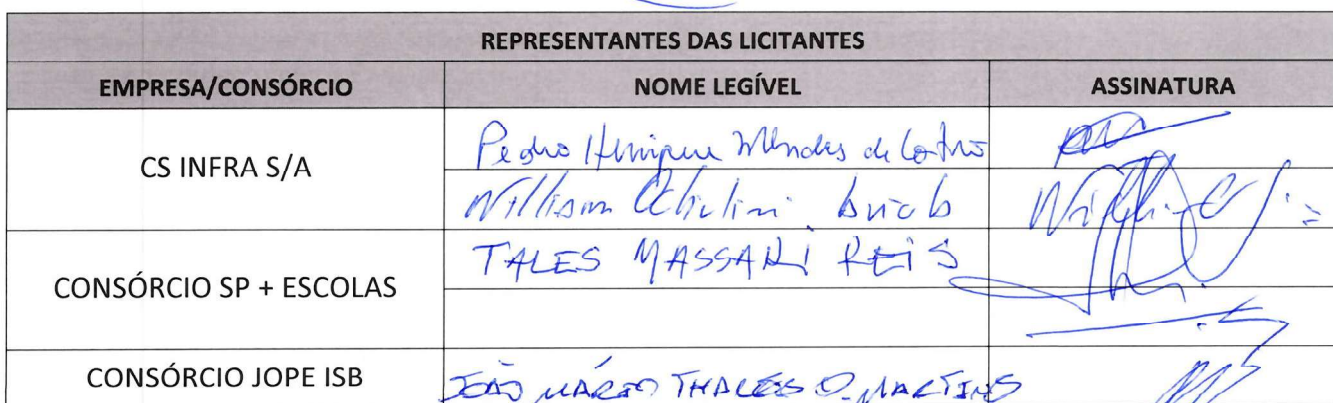 REPRESENTANTES DAS LICITANTES
EMPRESA/CONSÓRCIO NOME LEGÍVEL ASSINATURA
CS INFRA S/A
Pedro Henrique Mendes de Castro
William
CONSÓRCIO SP + ESCOLAS
TALES MASSARI REIS
CONSÓRCIO JOPE ISB
JOÃO MÁRIO THALES O. MARTINS